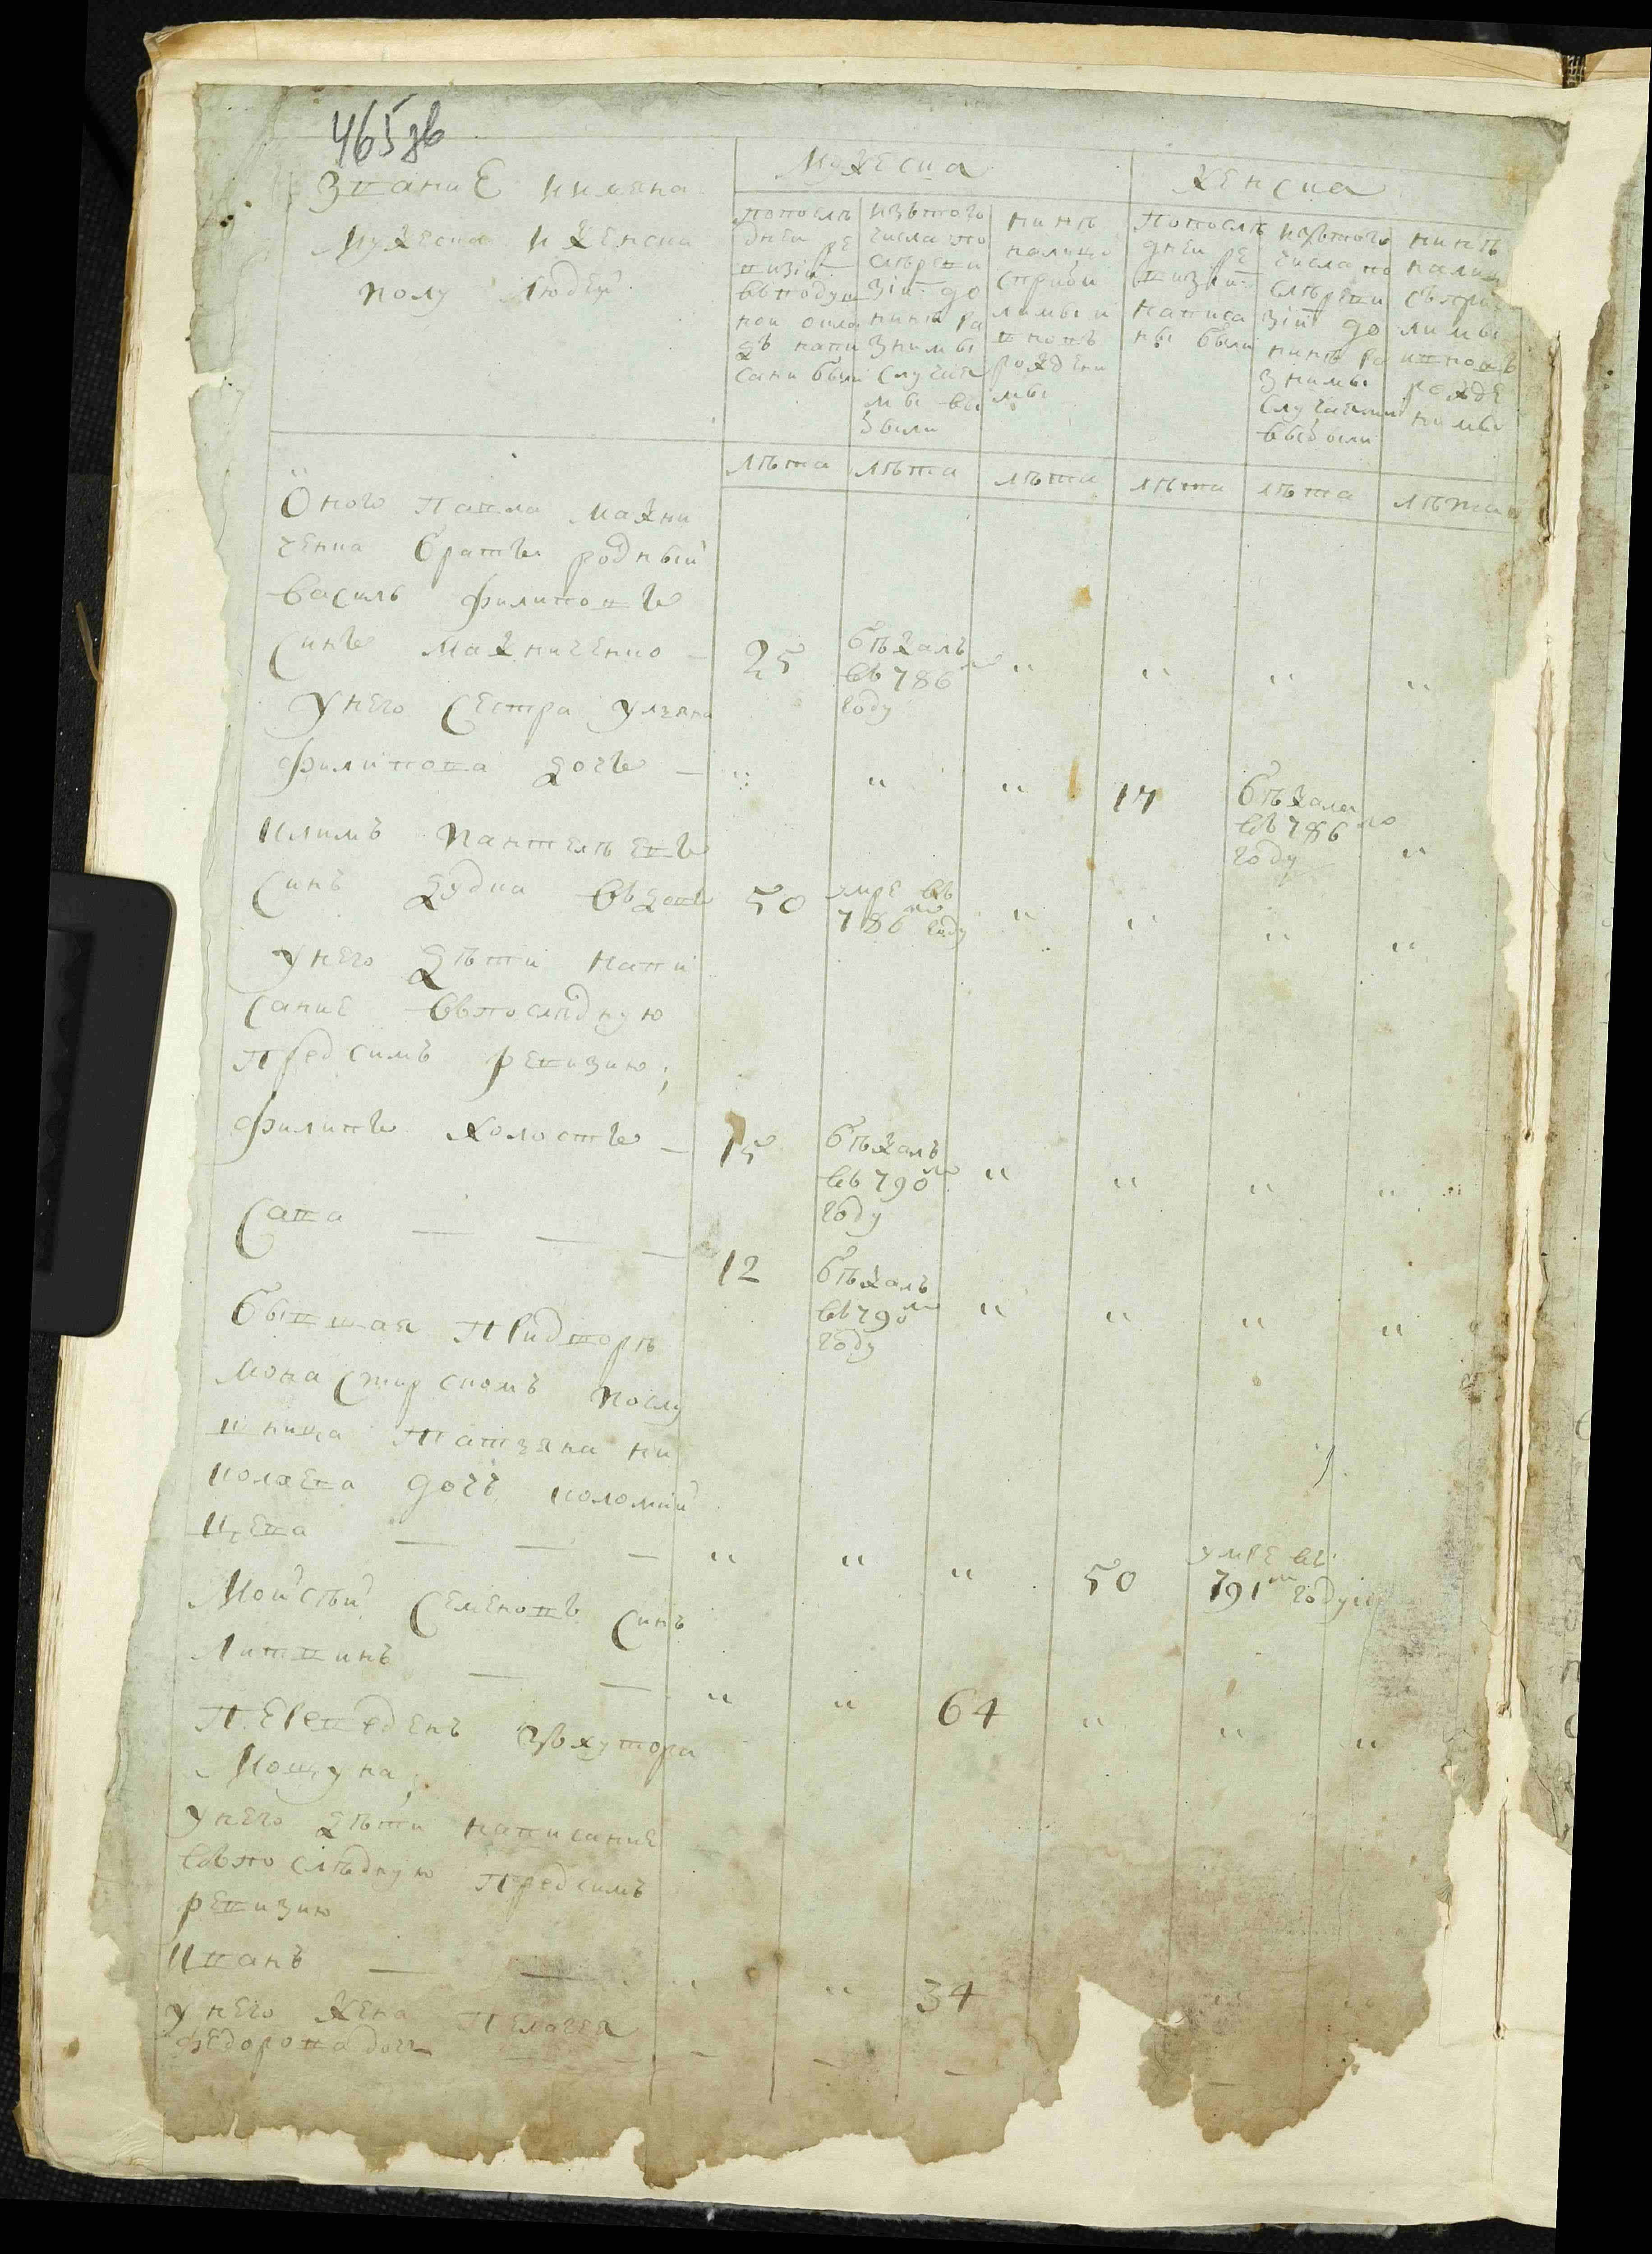 465зв
Звание и имяна
Мужеска и женска
полу людей
Мужеска
Женска
попослѣ
дней ре
визіи
въподуш
ной окла
дъ напи
сани были
изътого
числа по
слѣреви
зіи до
нинѣ ра
зними
случая
ми ви
били
нинѣ
налицо
сприби
лими и
вновь
рождени
ми
попослѣ
дней ре
визіи
написа
ны были
изътого
числа по
слѣреви
зіи до
нинѣ ра
зними
случаями
выбили
нинѣ
налицо
съпри
лими
ивновь
рожде
ними
лѣта лѣта лѣта лѣта лѣта лѣта
Оного Павла Махни
ченка братъ родный
Василь Филиповъ
синъ Махниченко — 25 бѣжалъ въ 786мъ году " " " "
Унего сестра Уляна
Филипова дочъ — " " " 17 бѣжала въ 786мъ году "
Климъ Пантелѣевъ
синъ Дудка вдовъ 50 умре въ 786мъ году " " " "
унего дѣти напи
сание въпослѣдную
предсимъ ревизию;
Филипъ холостъ — 15 бѣжалъ въ 790мъ году " " " "
Сава — — — 12 бѣжалъ въ 790мъ году " " " "
Бывшая при дворѣ
монастирскомъ послу
шница Татяна Ни
колаева дочъ Коломій
цева — — — " " " 50 умре въ 791м году "
Мойсѣй Семеновъ синъ
Литвинъ — — " " 64 " " "
Переведенъ зхутора
Мощуна;
Унего дѣти написание
въпослѣдную предсимъ
ревизию
Иванъ — — " " 34
Унего жена Пелагея
Федорова дочь — — — — —